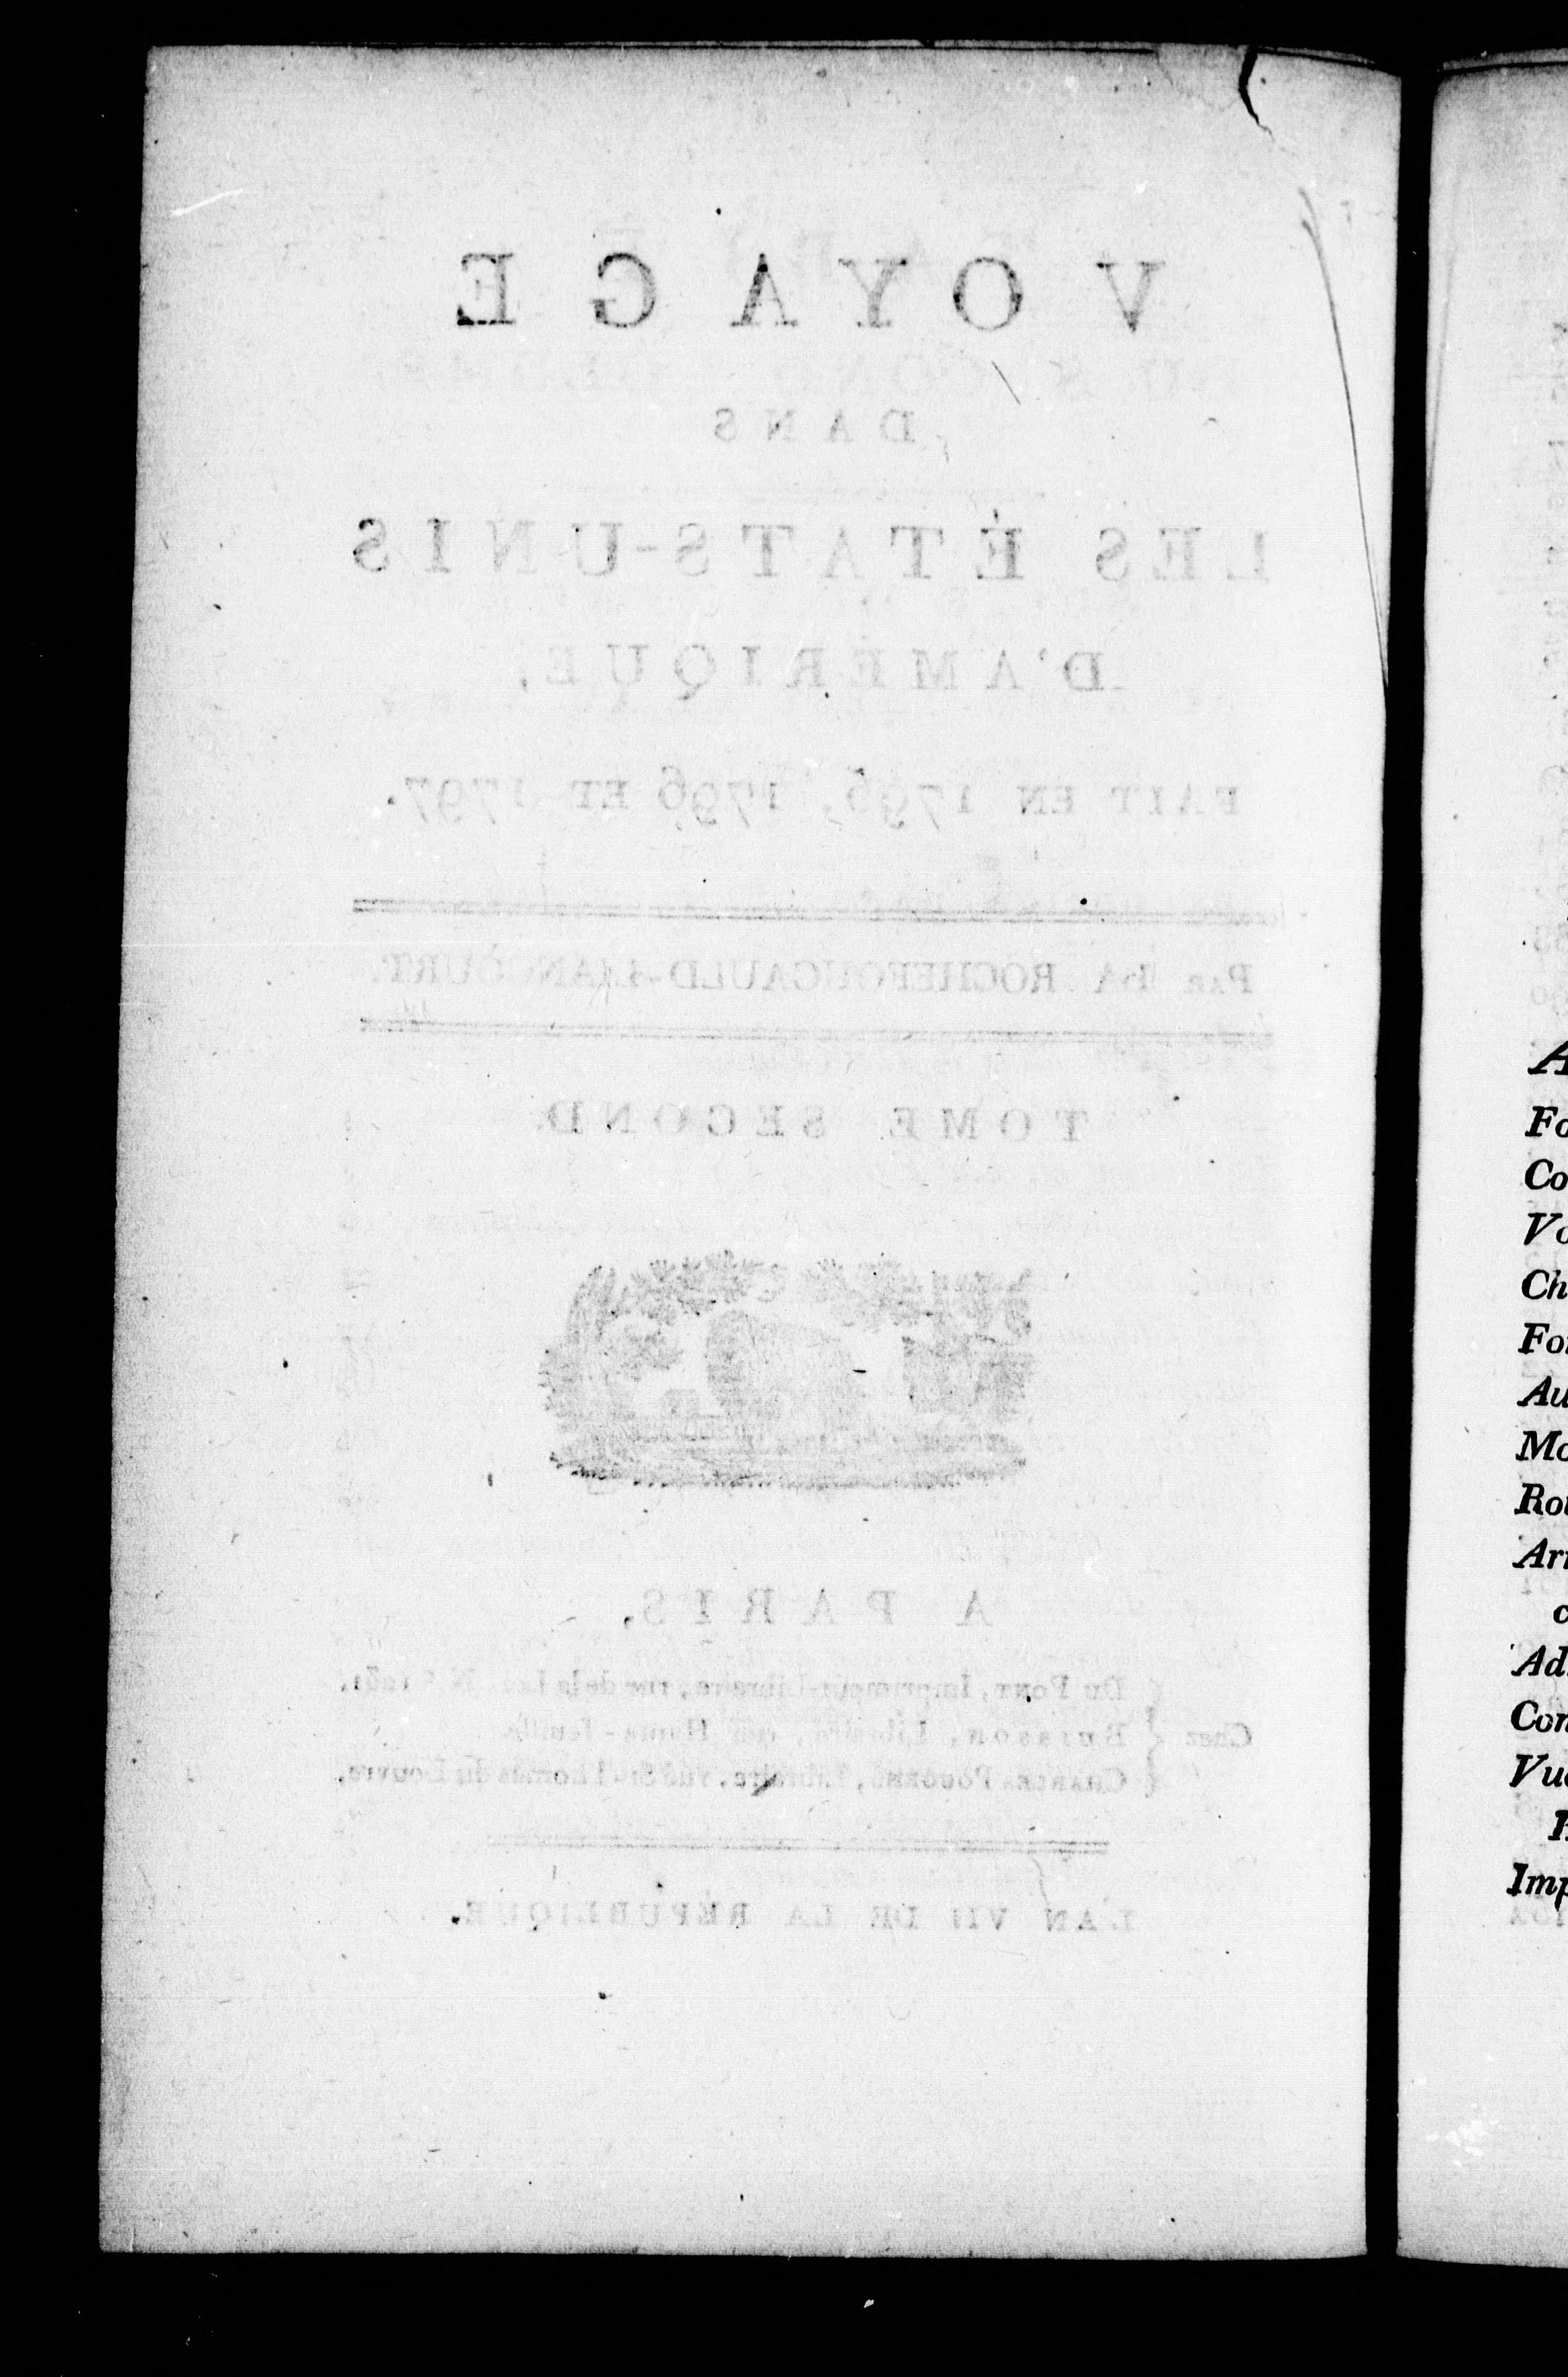 VOYAGE
DANS
LES ÉTATS-UNIS
D'AMÉRIQUE,
FAIT EN 1795, 1796 ET 1797.
PAR LA ROCHEFOUCAULD-LIANCOURT.
TOME SECOND.
A PARIS,
Chez
DU PONT, Imprimeur-Libraire, rue de la
BUISSON, Libraire, rue Haute-feuille
CHARLES POUGENS, Libraire, rue St.-Thomas du Louvre.
L'AN VII DE LA RÉPUBLIQUE.
A
Fo
Co
Vo
Ch
For
Au
Mo
Rou
Arr
c
Ad
Con
Vue
Imp